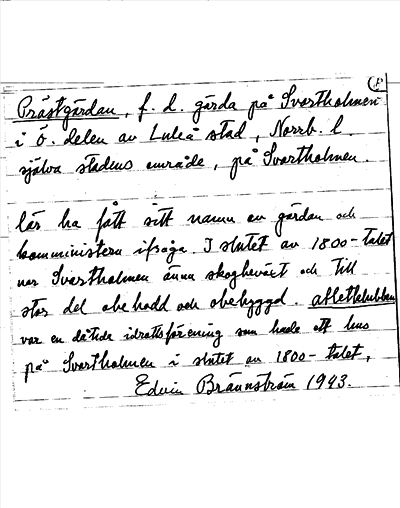 P
Prästgärdan, f. d. gärda på Svartholmen
i ö. delen av Luleå stad, Norrb. l.
själva stadens område, på Svartholmen.
lär ha fått sitt namn av gärdan och
komministern ifråga. I slutet av 1800-talet
var Svartholmen ännu skogbeväxt och till
stor del obebodd och obebyggd. Atletklubben
var en dåtida idrottsförening som hade ett hus
på Svartholmen i slutet av 1800-talet,
Edvin Brännström 1943.